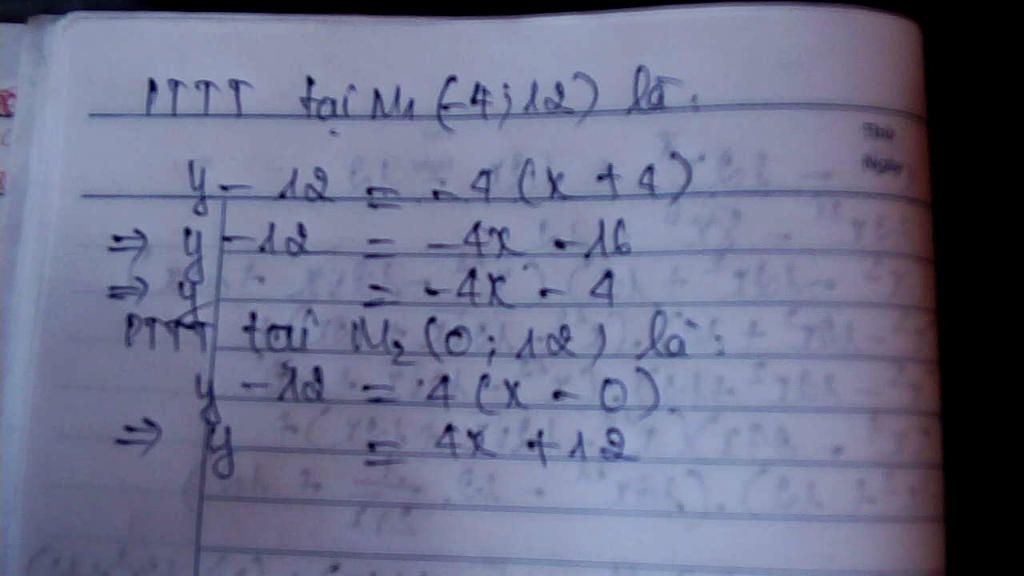 PTTT tại M₁ (-4; 12) là:
y - 12 = -4 (x + 4)
⇒ y - 12 = -4x - 16
⇒ y = -4x - 4
PTTT tại M₂ (0; 12) là:
y - 12 = 4 (x - 0)
⇒ y = 4x + 12